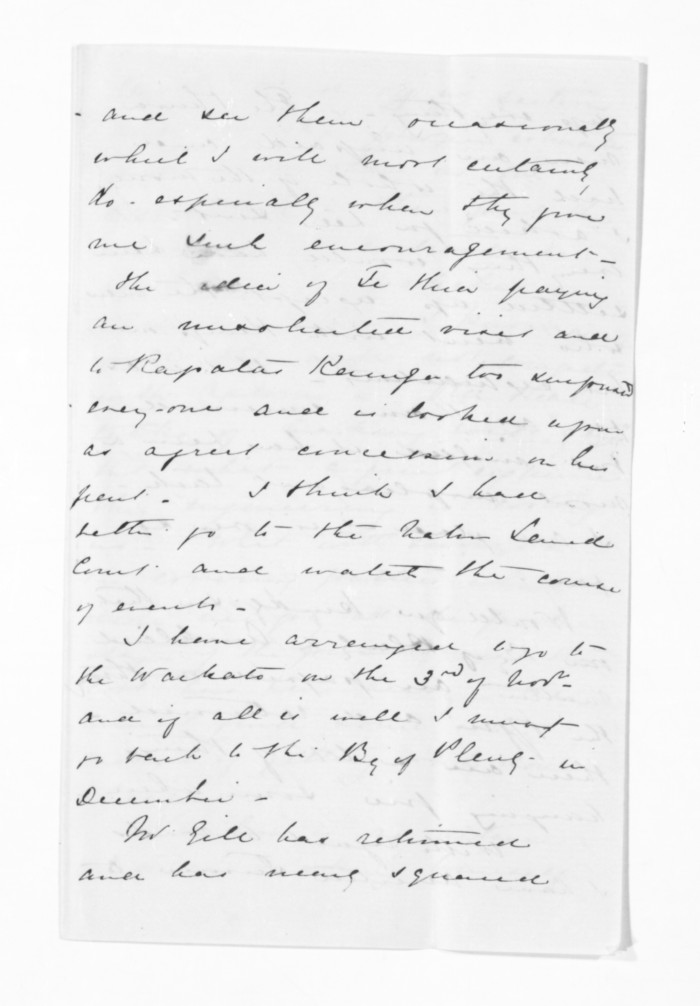 and see them occasionally
which I will most certainly
do - especially when they give
me such encouragement -
the idea of Te Hira paying
an unsolicited visit and
to Rapatas Kainga too surprised
every-one and is looked upon
as a great concession on his
part - I think I had
better go to the Native Land
Court and watch the course
of events -
I have arranged to go to
the Waikato on the 3rd of Novr -
and if all is well I must
go back to the By of Plenty in
December -
Mr Gill has returned
and has nearly squared